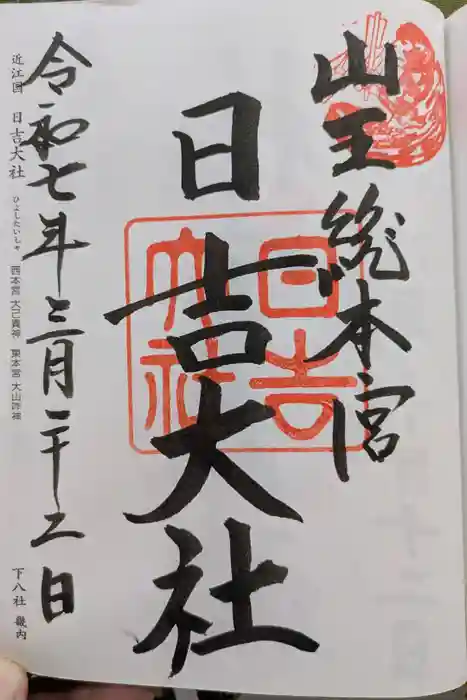 山王総本宮
日吉大社
日吉
大社
令和七年三月二十二日
近江国 日吉大社 ひよしたいしゃ 西本宮 大己貴神 東本宮 大山咋神 下八社 畿内